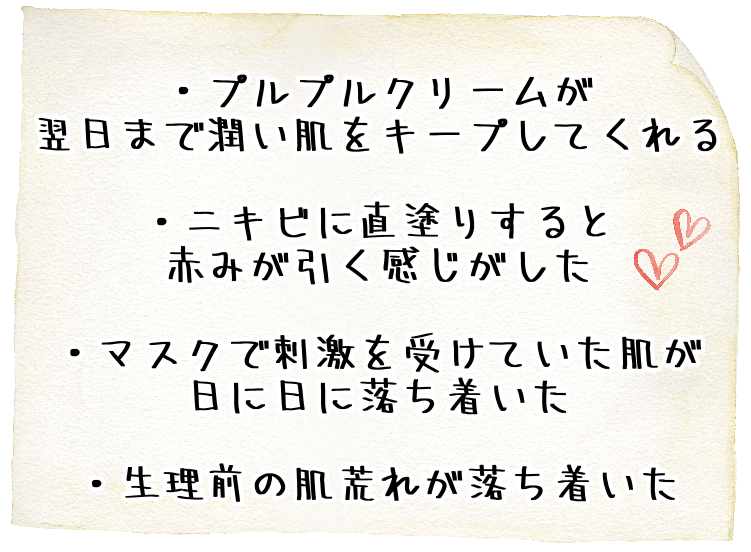 ・プルプルクリームが
翌日まで潤い肌をキープしてくれる
・ニキビに直塗りすると
赤みが引く感じがした
・マスクで刺激を受けていた肌が
日に日に落ち着いた
・生理前の肌荒れが落ち着いた